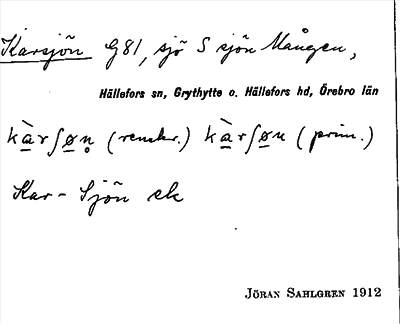 Karsjön G81, sjö S sjön Mången,
Hällefors sn, Grythytte o. Hällefors hd, Örebro län
kàrʃøn̥ (renskr.) kàrʃøn (prim.)
Kar-Sjön ek
JÖRAN SAHLGREN 1912